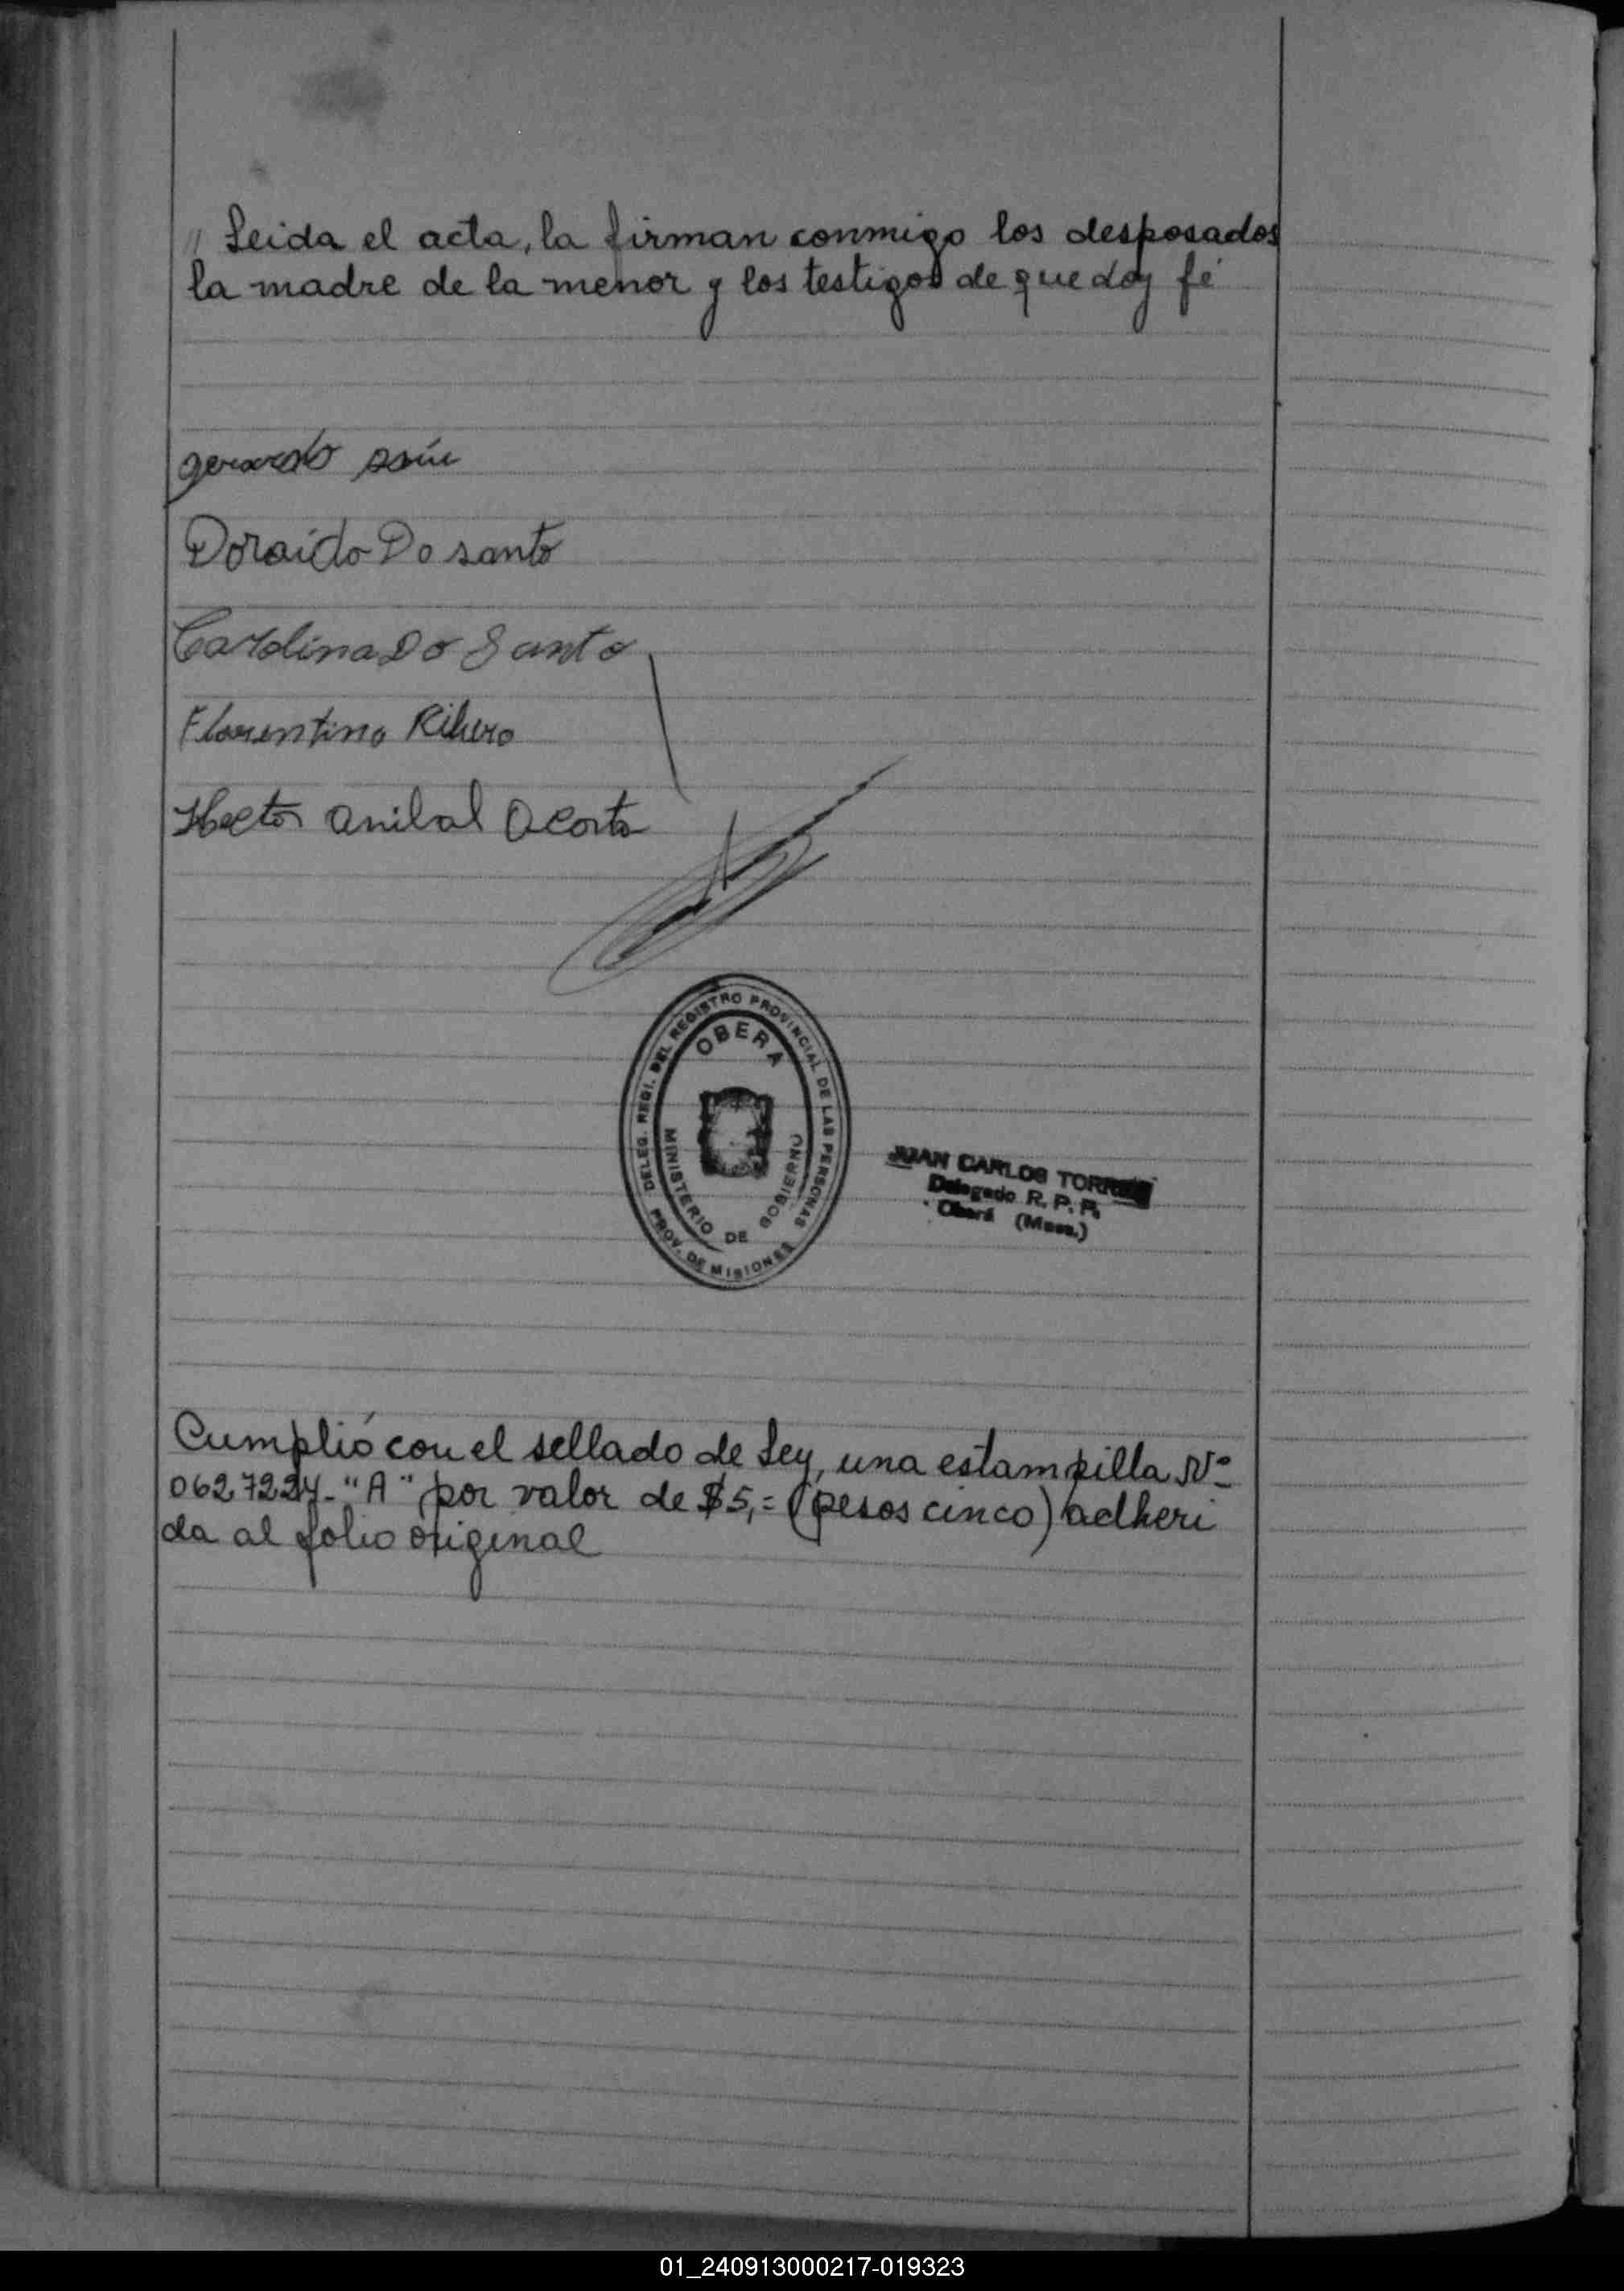 " Leida el acta, la firman conmigo los desposados
la madre de la menor y los testigos de que doy fé
gerardo
Doraido Do santo
Carolina Do Santo
Florentino Ribero
Hector anibal acosta
DELEG. REGI. DEL REGISTRO PROVINCIAL DE LAS PERSONAS
OBERA
MINISTERIO DE GOBIERNO
PROV. DE MISIONES
JUAN CARLOS TORRES
Delegado R. P. P.
Oberá (Mnes.)
Cumplió con el sellado de Ley, una estampilla Nº
"A" por valor de $5,= (pesos cinco) adheri
da al folio original
01_240913000217-019323